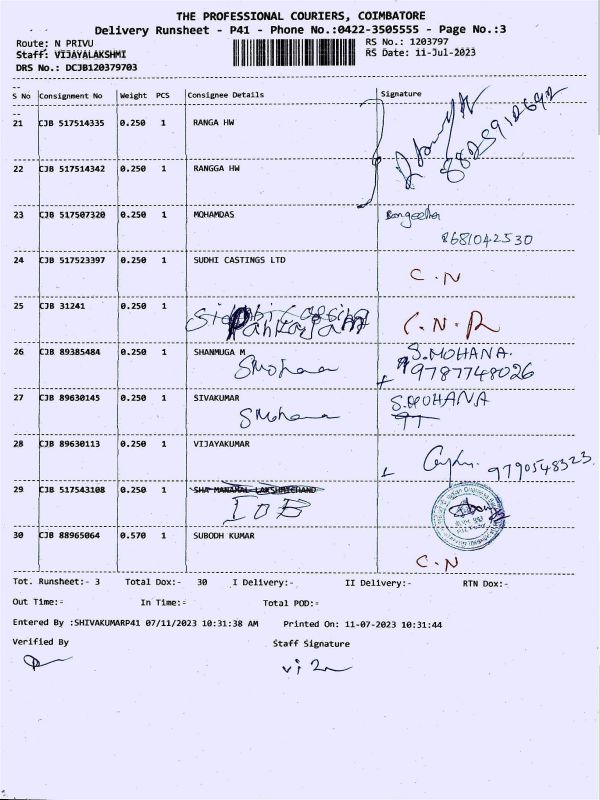 THE PROFESSIONAL COURIERS, COIMBATORE
Delivery Runsheet - P41 - Phone No.:0422-3505555 - Page No.:3
Route: N PRIVU RS No.: 1203797
Staff: VIJAYALAKSHMI RS Date: 11-Jul-2023
DRS No.: DCJB120379703
S No Consignment No Weight PCS Consignee Details Signature
21 CJB 517514335 0.250 1 RANGA HW
8825912692
22 CJB 517514342 0.250 1 RANGGA HW
23 CJB 517507320 0.250 1 MOHAMDAS
8681042530
24 CJB 517523397 0.250 1 SUDHI CASTINGS LTD
C.N
25 CJB 31241 0.250 1
C.N.R
26 CJB 89385484 0.250 1 SHANMUGA M S.MOHANA.
SMohana 9787748026
27 CJB 89630145 0.250 1 SIVAKUMAR S.MOHANA
SMohana
28 CJB 89630113 0.250 1 VIJAYAKUMAR
9790548323
29 CJB 517543108 0.250 1 SHA MANAMAL LAKSHMICHAND
IOB
30 CJB 88965064 0.570 1 SUBODH KUMAR
C.N
Tot. Runsheet:- 3 Total Dox:- 30 I Delivery:- II Delivery:- RTN Dox:-
Out Time:- In Time:- Total POD:=
Entered By :SHIVAKUMARP41 07/11/2023 10:31:38 AM Printed On: 11-07-2023 10:31:44
Verified By Staff Signature